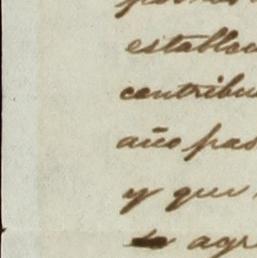 establec
contribu
año pas
y que
agr